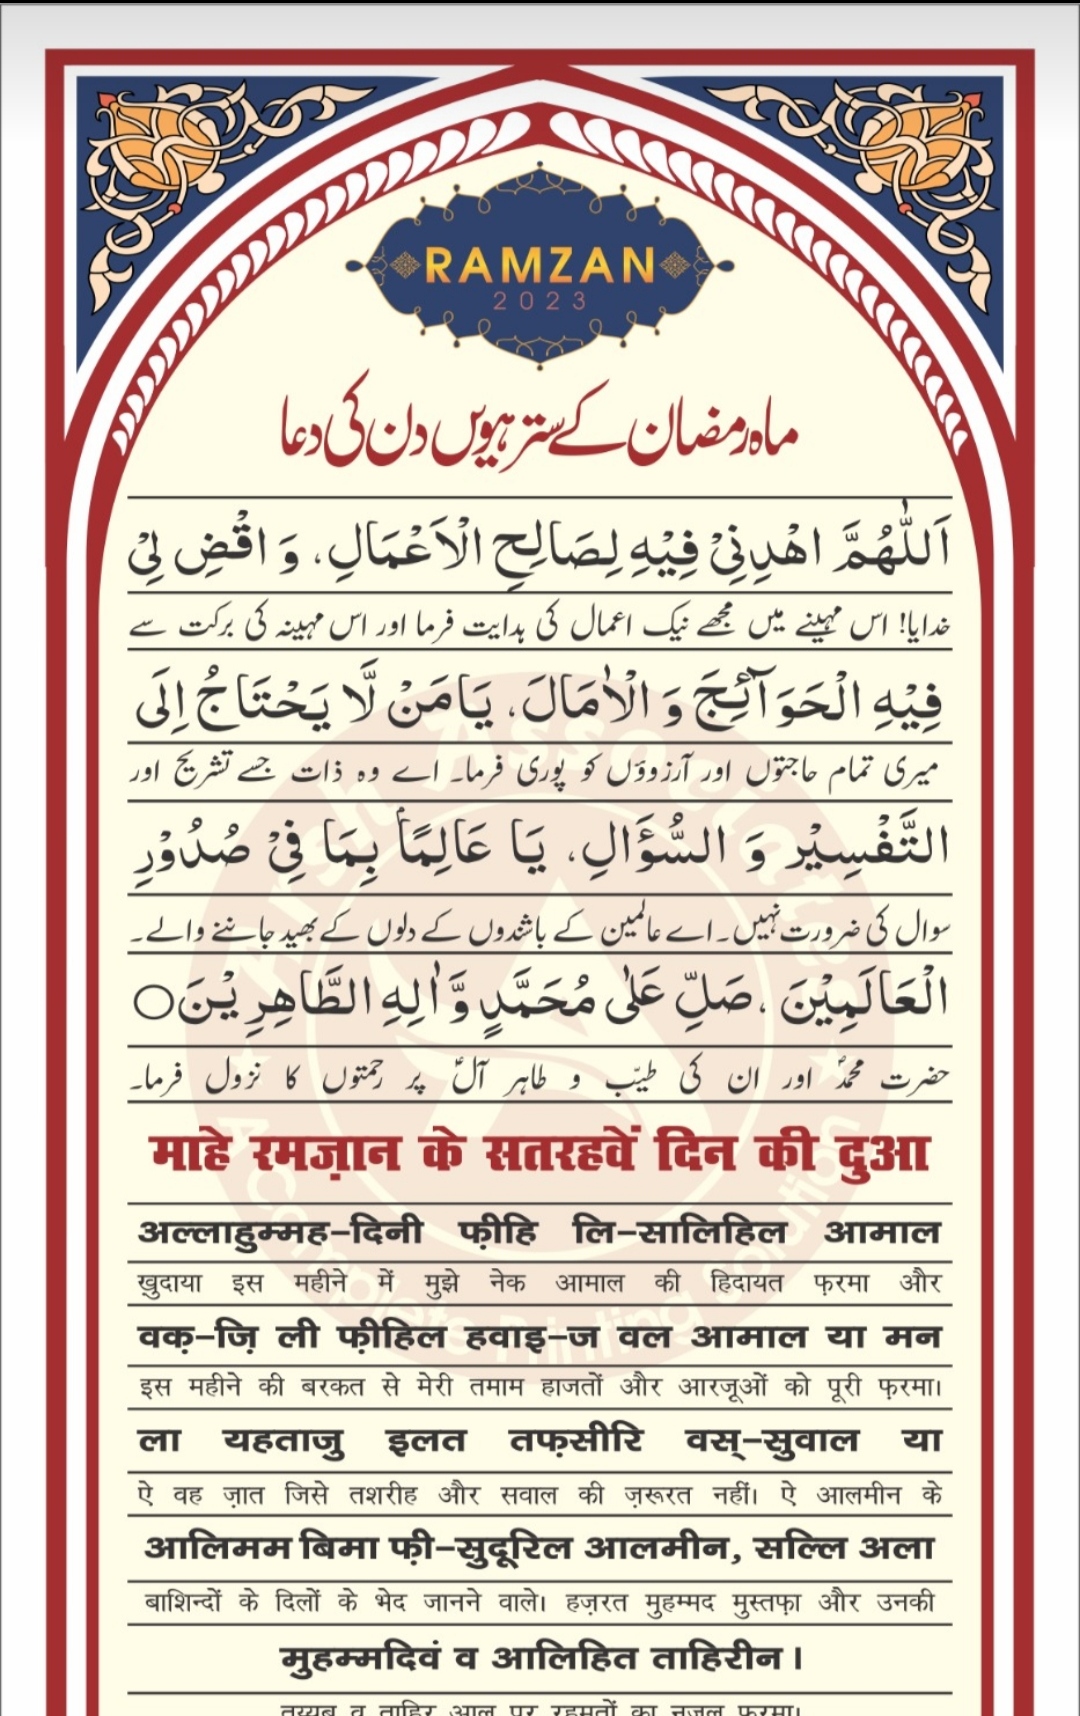 RAMZAN
2023
ماہ رمضان کے سترہویں دن کی دعا
اَللّٰهُمَّ اهْدِنِیْ فِیْهِ لِصَالِحِ الْاَعْمَالِ، وَ اقْضِ لِیْ
خدایا! اس مہینے میں مجھے نیک اعمال کی ہدایت فرما اور اس مہینہ کی برکت سے
فِیْهِ الْحَوَآئِجَ وَ الْاٰمَالَ، یَامَنْ لَّا یَحْتَاجُ اِلَی
میری تمام حاجتوں اور آرزوؤں کو پوری فرما۔ اے وہ ذات جسے تشریح اور
التَّفْسِیْرِ وَ السُّؤَالِ، یَا عَالِمًا بِمَا فِیْ صُدُوْرِ
سوال کی ضرورت نہیں۔ اے عالمین کے باشندوں کے دلوں کے بھید جاننے والے۔
الْعَالَمِیْنَ، صَلِّ عَلٰی مُحَمَّدٍ وَّاٰلِهِ الطَّاهِرِیْنَ○
حضرت محمدؐ اور ان کی طیّب و طاہر آلؑ پر رحمتوں کا نزول فرما۔
माहे रमज़ान के सतरहवें दिन की दुआ
अल्लाहुम्मह-दिनी फ़ीहि लि-सालिहिल आमाल
ख़ुदाया इस महीने में मुझे नेक आमाल की हिदायत फ़रमा और
वक़-ज़ि ली फ़ीहिल हवाइ-ज वल आमाल या मन
इस महीने की बरकत से मेरी तमाम हाजतों और आरजूओं को पूरी फ़रमा।
ला यहताजु इलत तफ़सीरि वस्-सुवाल या
ऐ वह ज़ात जिसे तशरीह और सवाल की ज़रूरत नहीं। ऐ आलमीन के
आलिमम बिमा फ़ी-सुदूरिल आलमीन, सल्लि अला
बाशिन्दों के दिलों के भेद जानने वाले। हज़रत मुहम्मद मुस्तफ़ा और उनकी
मुहम्मदिवं व आलिहित ताहिरीन।
तय्यब व ताहिर आल पर रहमतों का नुज़ूल फ़रमा।